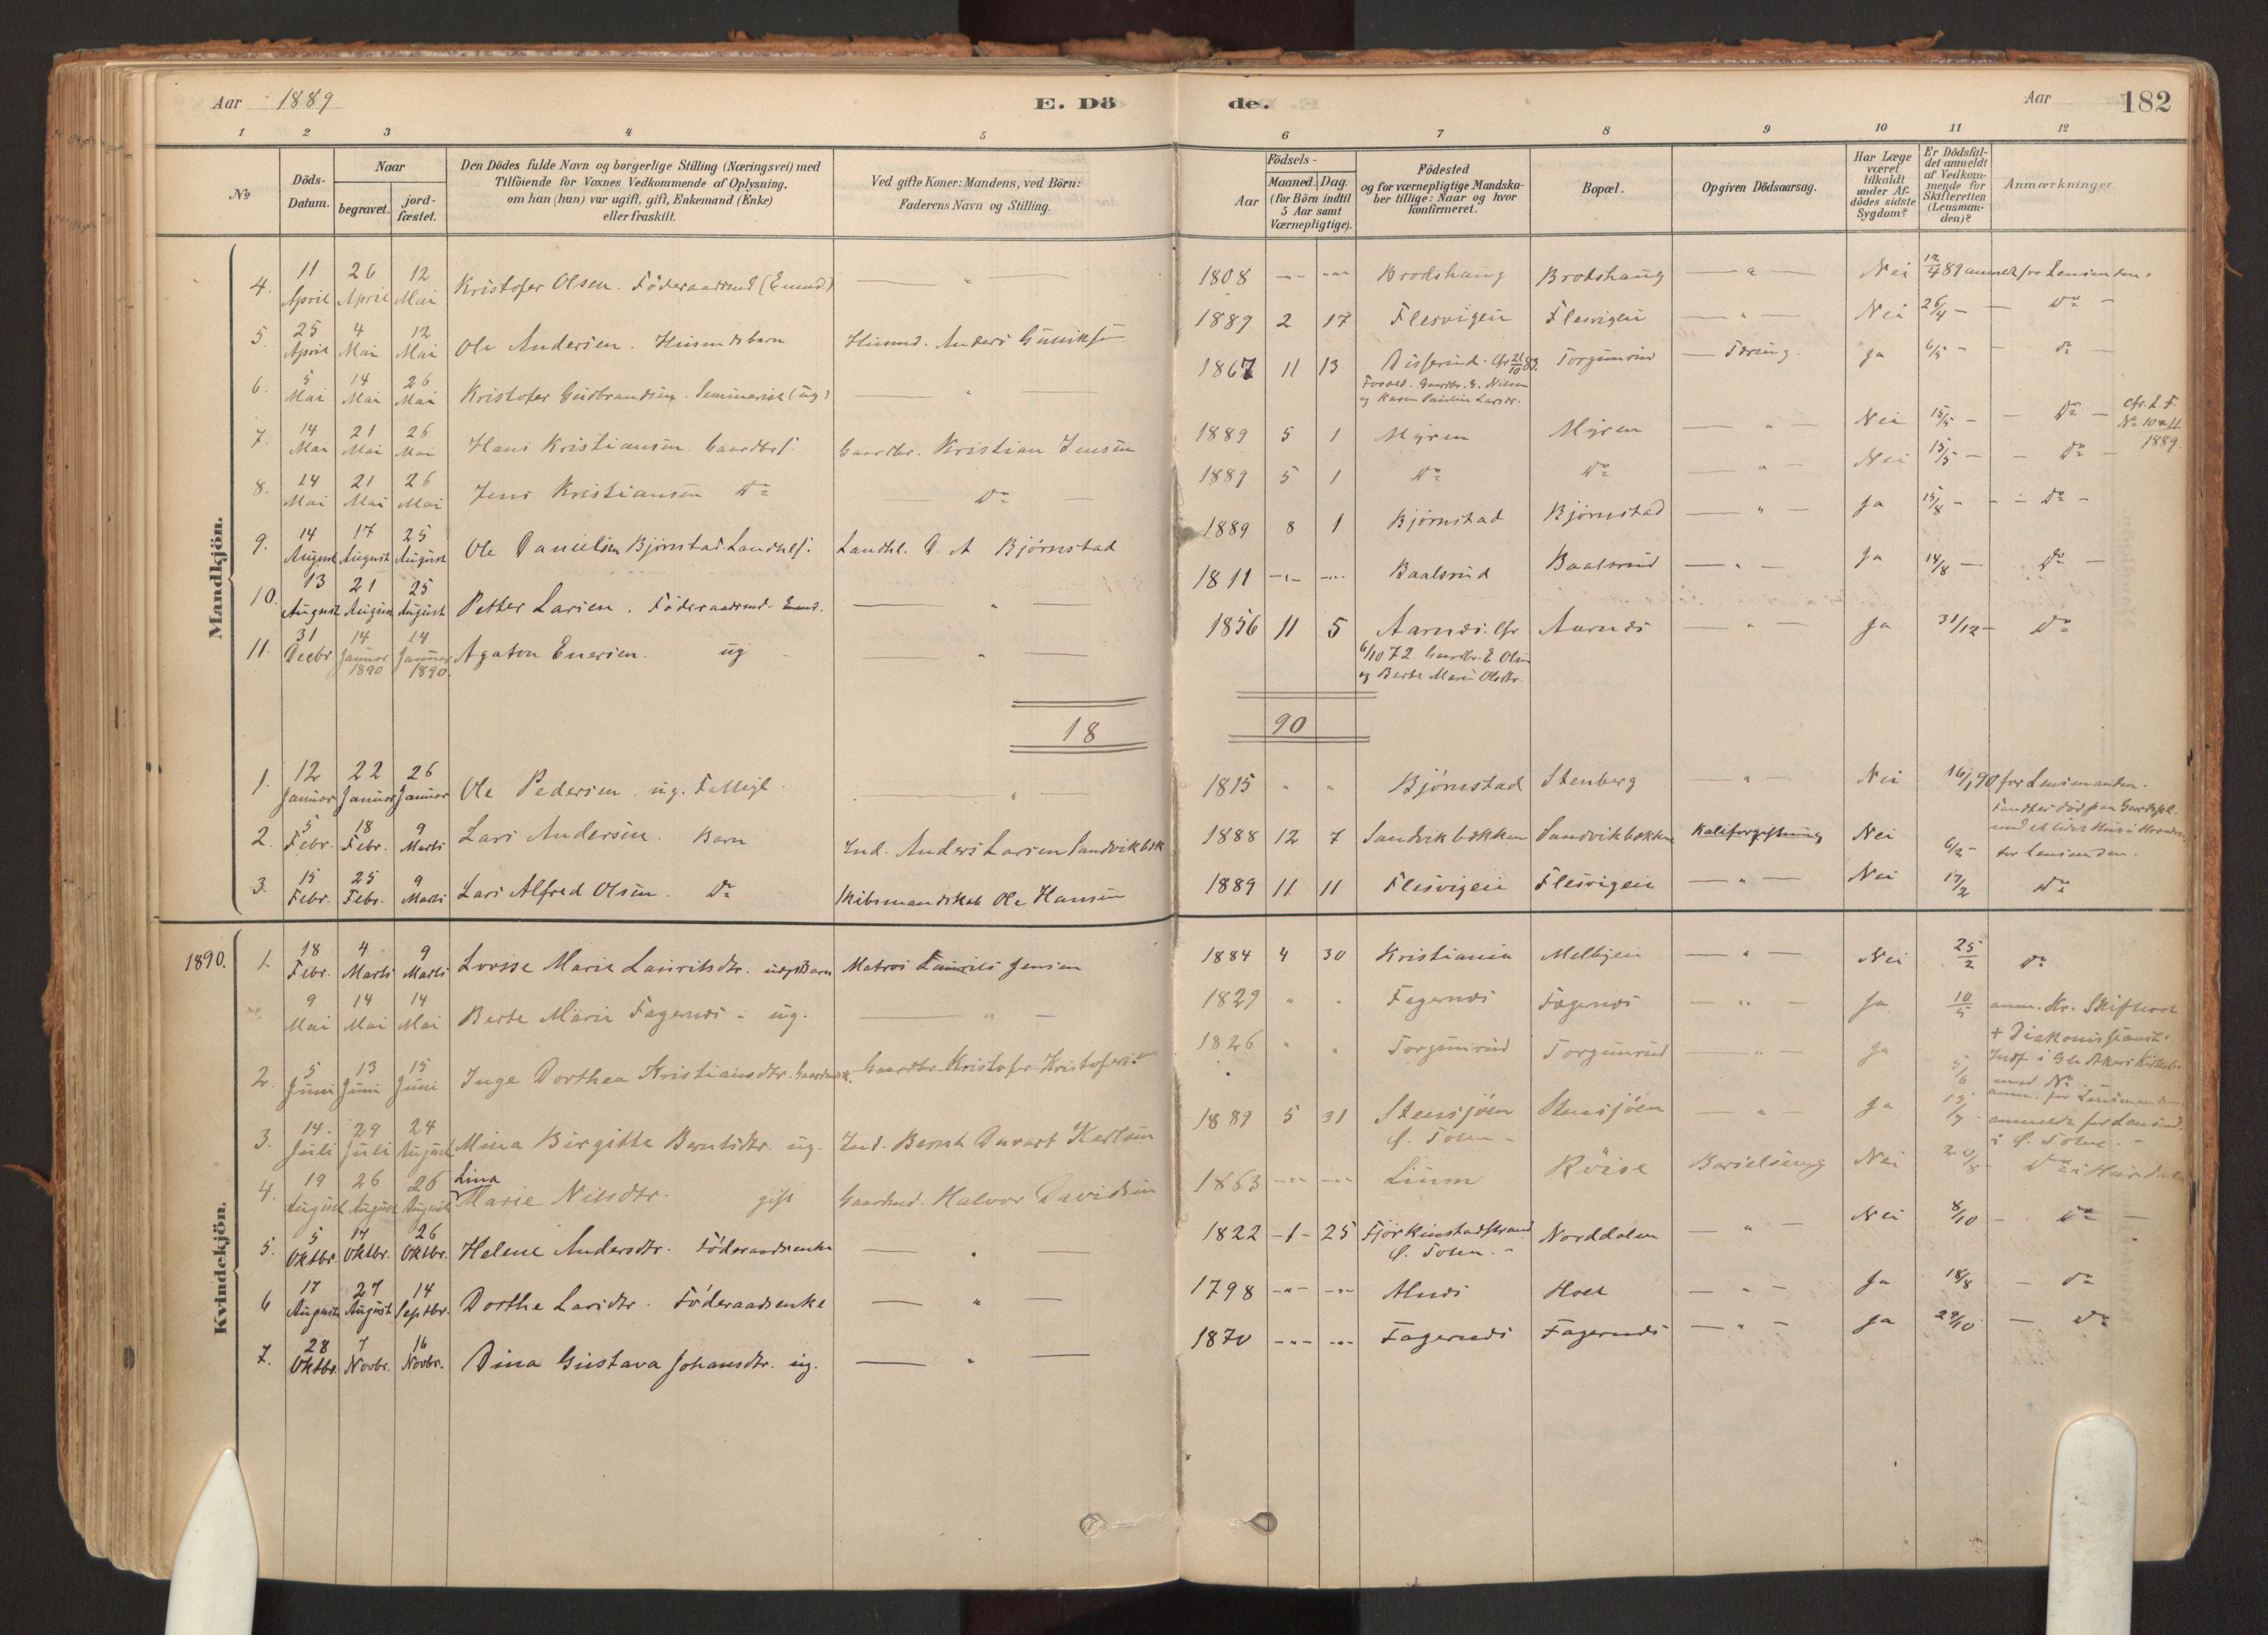 Aar 1889
E. Döde.
Aar 182
1 2 3 4 5 6 7 8 9 10 11 12
No
Döds-Datum.
Naar
begravet.
jordfæstet.
Den Dödes fulde Navn og borgerlige Stilling (Næringsvei) med
Tilföiende for Voxnes Vedkommende af Oplysning,
om han (hun) var ugift, gift, Enkemand (Enke)
eller fraskilt.
Ved gifte Koner: Mandens, ved Börn:
Faderens Navn og Stilling.
Födsels-
Aar
Maaned. Dag.
(for Börn indtil
5 Aar samt
Værnepligtige).
Födested
og for værnepligtige Mandska-
ber tillige: Naar og hvor
konfirmeret.
Bopæl.
Opgiven Dödsaarsag.
Har Læge
været
tilkaldt
under Af-
dödes sidste
Sygdom?
Er Dödsfal-
det anmeldt
af Vedkom-
mende for
Skifteretten
(Lensman-
den)?
Anmærkninger.
Mandkjön.
4. 11 April 26 April 12 Mai Kristofer Olsen. Föderaadsmd (Enmd.) — " — 1808 Brodshaug Brodshaug — " — Nei 12/4 89 anmeldt for Lensmanden.
5. 25 April 4 Mai 12 Mai Ole Andersen. Husmdsbarn Husmd. Anders Gulliks. 1889 2 17 Flesvigen Flesvigen — " — Nei 26/4 — Do —
6. 5 Mai 14 Mai 26 Mai Kristofer Gudbrandsen. Seminarist (ug) — " — 1867 11 13 Disserud. Cfr 21/10 83. Torgunrud — Tæring. Ja 6/5 — Do —
Foræld. Gaardbr. G. Nilsen
og Karen Pauline Larsdr.
7. 14 Mai 21 Mai 26 Mai Hans Kristiansen Gaardbrs. Gaardbr. Kristian Jensen 1889 5 1 Myren Myren — " — Nei 15/5 — Do — cfr. L. F.
No 10 & 11
1889.
8. 14 Mai 21 Mai 26 Mai Jens Kristiansen Do — Do — 1889 5 1 Do Do — " — Nei 15/5 — Do —
9. 14 August 17 August 25 August Ole Danielsen Bjørnstad Landhls. Landhl. D. A Bjørnstad 1889 8 1 Bjørnstad Bjørnstad — " — Ja 15/8 — Do —
10. 13 August 21 August 25 August Petter Larsen. Föderaadsmd. Enmd. — " — 1811 Baalsrud Baalsrud — " — Ja 14/8 — Do —
11. 31 Decbr. 14 Januar 1890 14 Januar 1890. Agaton Enersen. ug — " — 1856 11 5 Aarnæs. Cfr Aarnæs — " — Ja 31/12 — Do
6/10 72. Gaardbr. E. Olsen
og Berte Marie Olsdtr.
18 90
1. 12 Januar 22 Januar 26 Januar Ole Pedersen. ug. Fattigl. — " — 1815 " " Bjørnstad Stenberg — " — Nei 16/1 90 for Lensmanden.
2. 5 Febr. 18 Febr. 9 Marts Lars Andersen. Barn Ind. Anders Larsen Sandvikbæk 1888 12 7 Sandvikbækken Sandvikbækken Kaliforgiftning Nei 6/2 - for Lensmden.
3. 15 Febr. 25 Febr. 9 Marts Lars Alfred Olsen. Do Skibsmandskab Ole Hansen 1889 11 11 Flesvigen Flesvigen — " — Nei 17/2 Do
1890.
Kvindekjön.
1. 18 Febr. 4 Marts 9 Marts Lovise Marie Lauritsdtr. Barn Matros Laurits Jensen 1884 4 30 Kristiania Melbyen — " — Nei 25/2 Do
9 Mai 14 Mai 14 Mai Berte Marie Fagernæs - ug. — " — 1829 " " Fagernæs Fagernæs — " — Ja 10/5 anm. Kr. Skifteret
+ Diakonisseanst.
2. 5 Juni 13 Juni 15 Juni Inge Dorthea Kristiansdtr. Gaardmdsk. Gaardbr. Kristofer Kristofersen 1826 " " Torgunrud Torgunrud — " — Ja 5/6 Indf. i Gl. Akers Kirkeb.
med No. -
anm. for Lensmanden
3. 14. Juli 29 Juli 24 August Mina Birgitte Berntsdtr. ug. Ind. Bernt Karlsen 1889 5 31 Stensjöen Stensjöen — " — Ja anmeldt for Lensmd.
Ö. Toten - i Ö. Toten. -
4. 19 August 26 August 26 August Lina Marie Nilsdtr. gift Gaardmd. Halvor Davidsen 1863 Linm Röise Barselseng Nei 20/8 Do i Hurdalen
5. 5 Oktbr. 14 Oktbr. 26 Oktbr. Helene Andersdtr. Föderaadsenke — " — 1822 -1- 25 Norddalen — " — Nei 8/10 — Do —
Ö. Toten. -
6 17 August 27 August 14 Septbr. Dorthe Larsdtr. Föderaadsenke — " — 1798 Alnæs Hoel — " — Ja 18/8 — Do
7. 28 Oktbr. 7 Novbr. 16 Novbr. Dina Gustava Johansdtr. ug. — " — 1870 Fagernæs Fagernæs — " — Ja 29/10 — Do